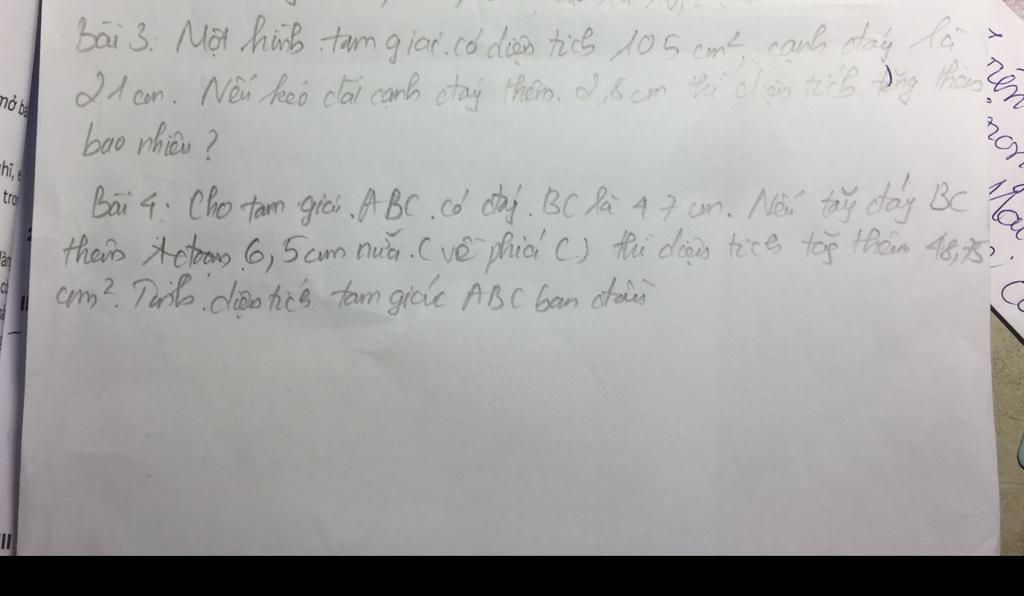 Bài 3. Một hình tam giác có diện tích 105 cm², cạnh đáy là
21 cm. Nếu kéo dài cạnh đáy thêm 2,8 cm thì diện tích tăng thêm
bao nhiêu?
Bài 4. Cho tam giác ABC có đáy BC là 47 cm. Nếu tăg đáy BC
thêm 1 đoạn 6,5 cm nữa (về phía C) thì diện tích tăg thêm 48,75
cm². Tính diện tích tam giác ABC ban đầu
mở b
hĩ,
tro
III